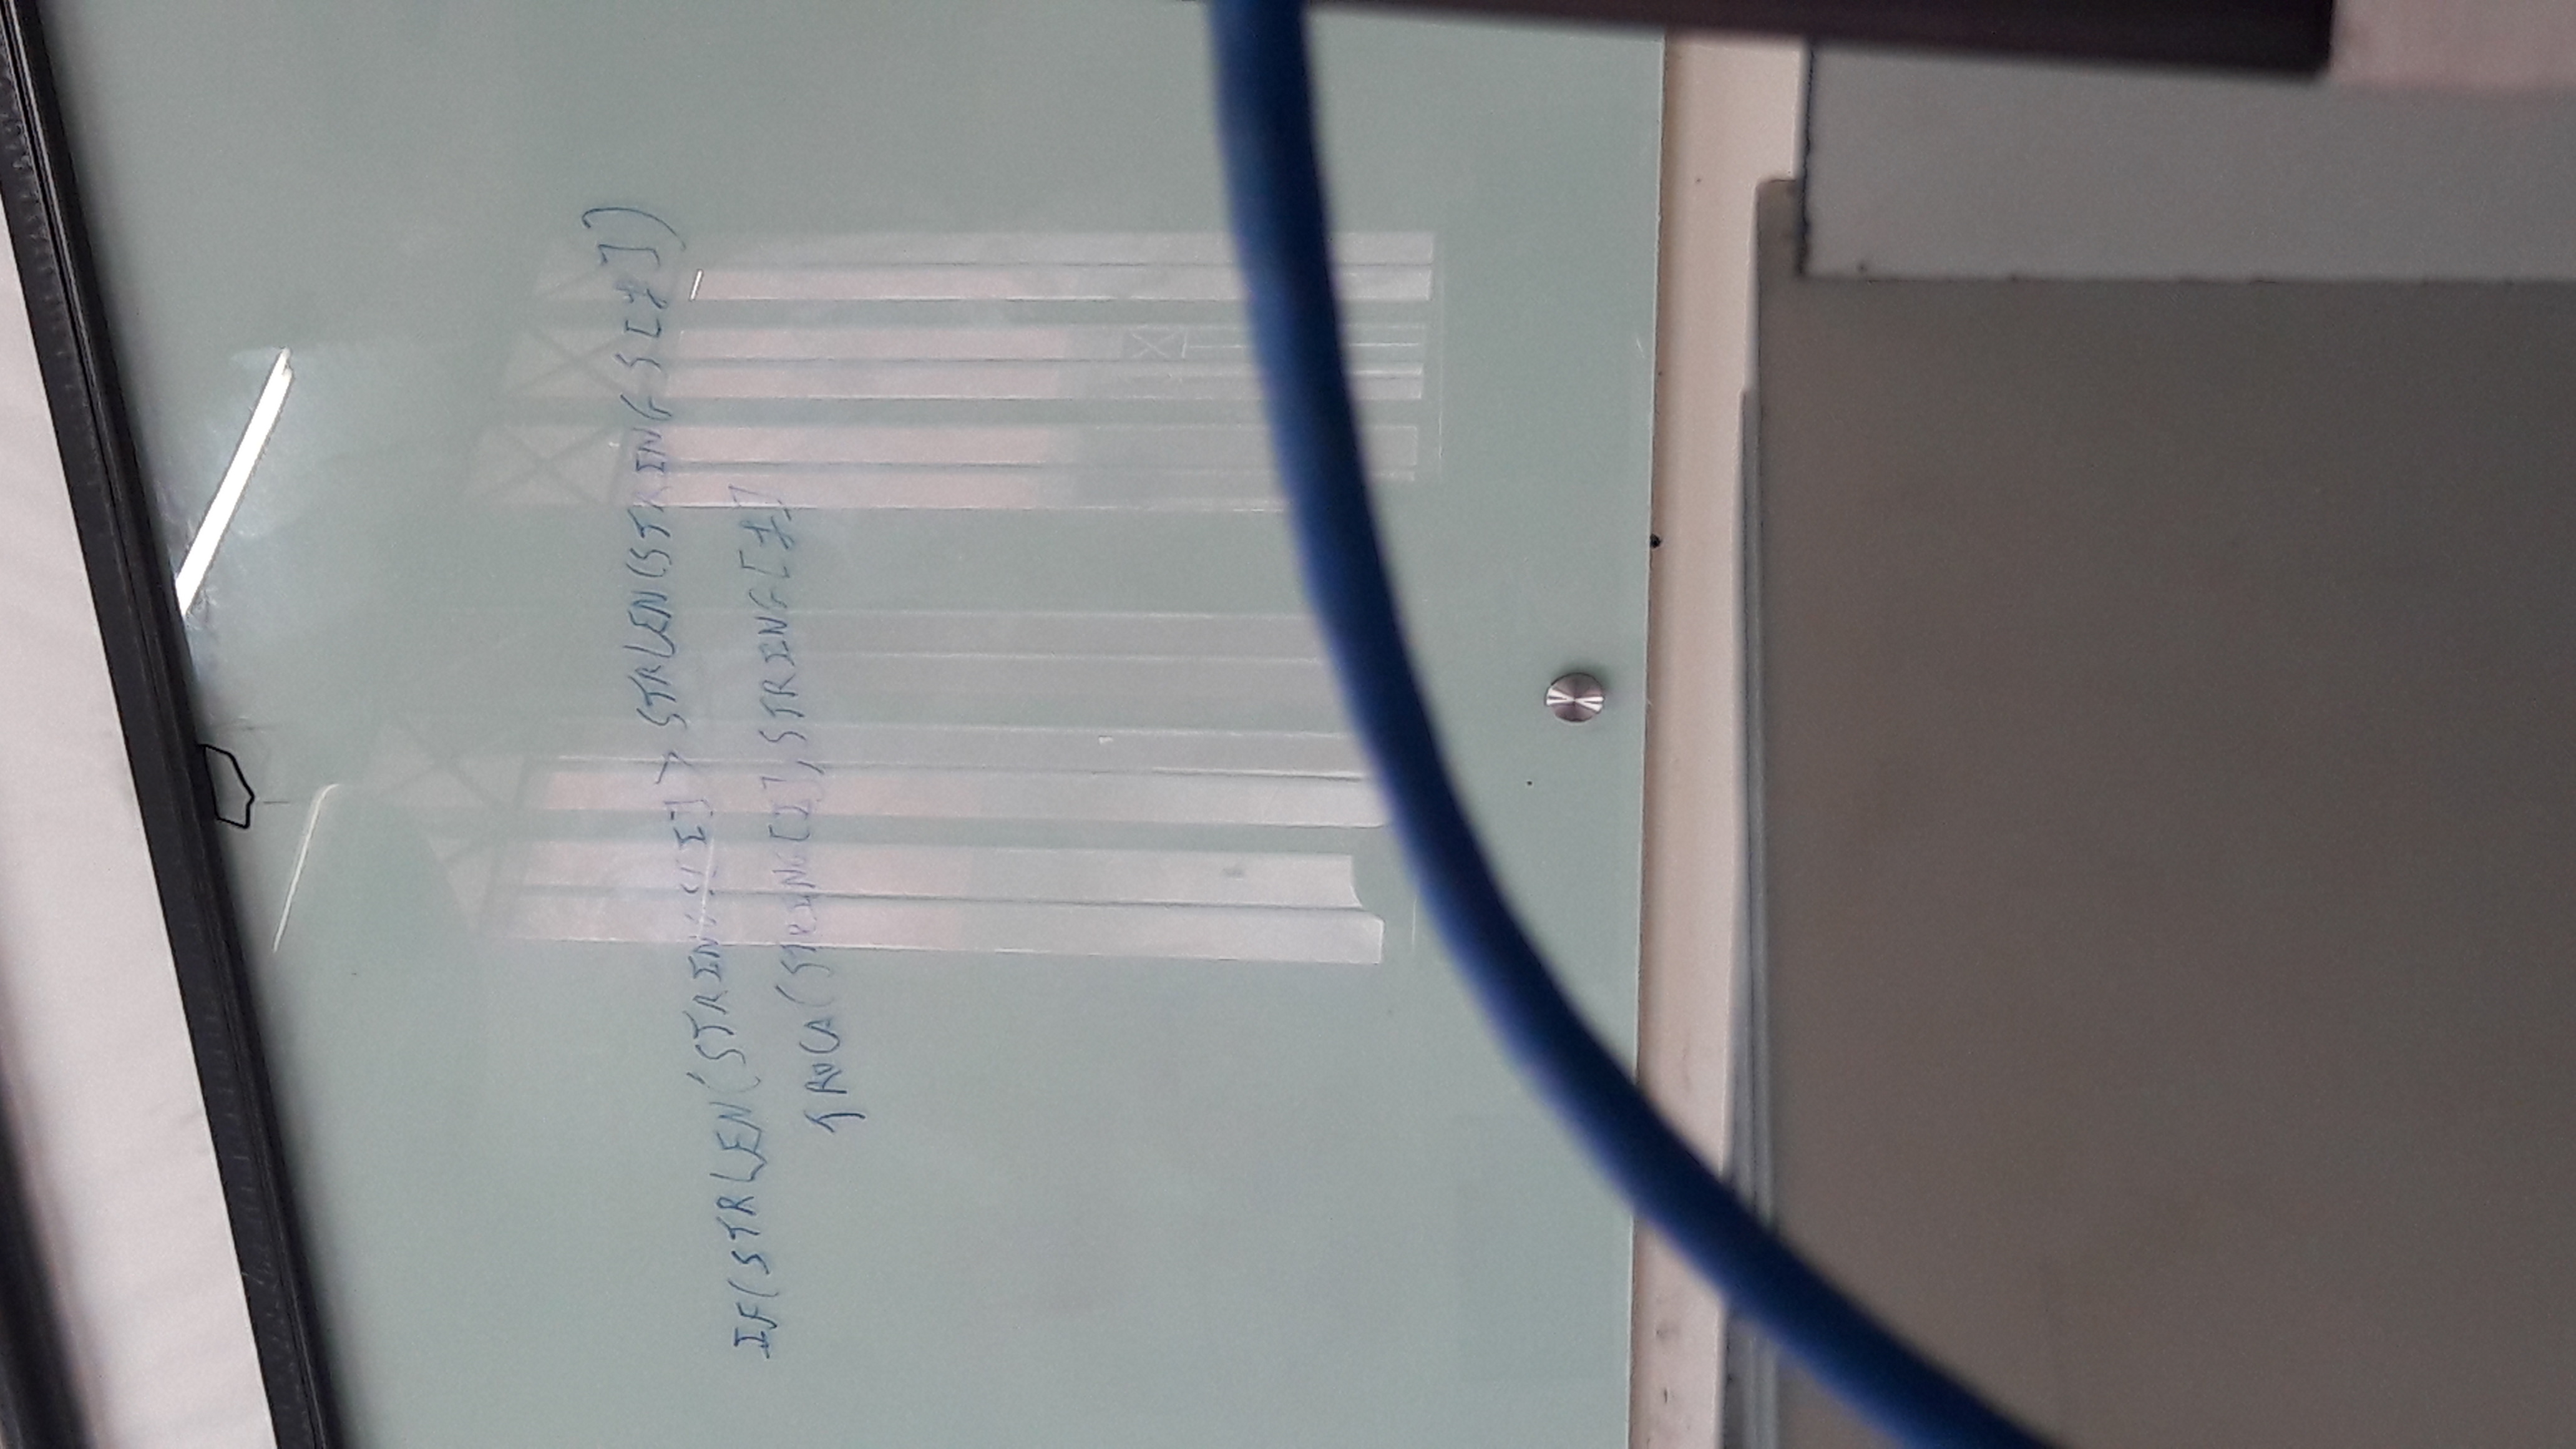 IF(STRLEN(STRINGS[I] > STRLEN(STRINGS[J])
TROCA(STRING[I], STRING[J]